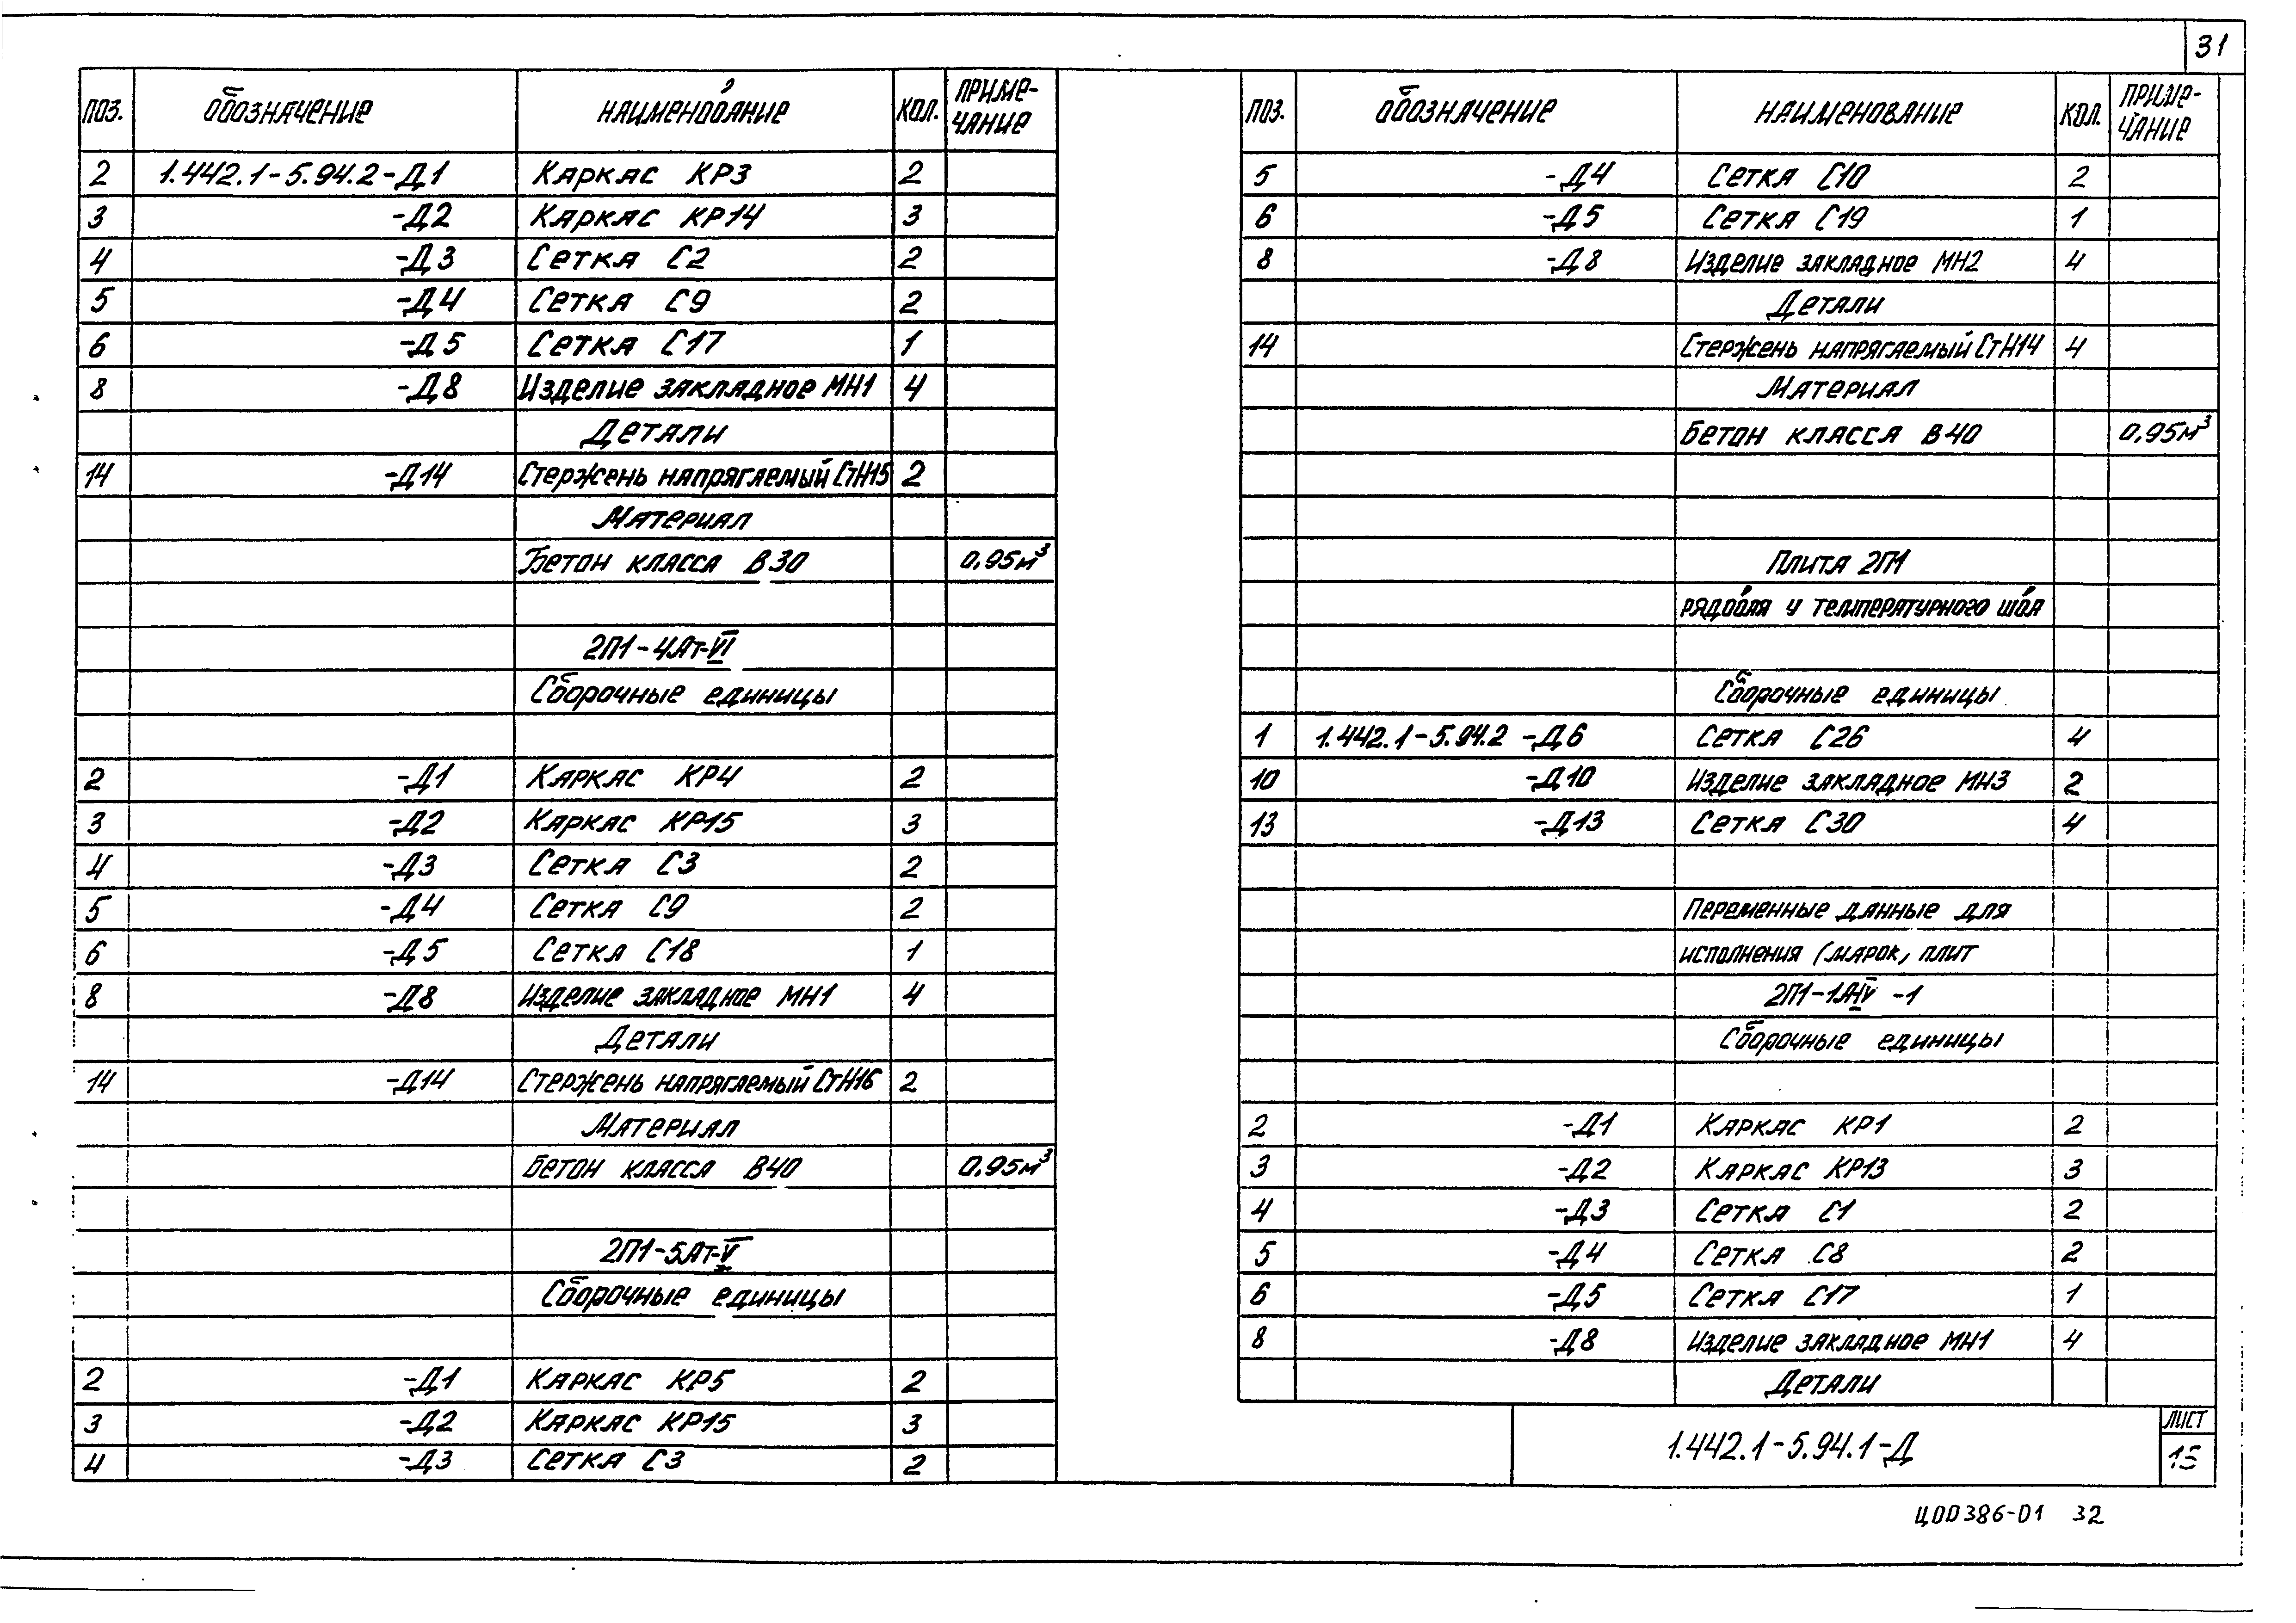 31
ПОЗ. ОБОЗНАЧЕНИЕ НАИМЕНОВАНИЕ КОЛ. ПРИМЕ-
ЧАНИЕ
2 1.442.1-5.94.2-Д1 Каркас КР3 2
3 -Д2 Каркас КР14 3
4 -Д3 Сетка С2 2
5 -Д4 Сетка С9 2
6 -Д5 Сетка С17 1
8 -Д8 Изделие закладное МН1 4
Детали
14 -Д14 Стержень напрягаемый СтН15 2
Материал
Бетон класса В30 0,95м³
2П1-4Ат-VI
Сборочные единицы
2 -Д1 Каркас КР4 2
3 -Д2 Каркас КР15 3
4 -Д3 Сетка С3 2
5 -Д4 Сетка С9 2
6 -Д5 Сетка С18 1
8 -Д8 Изделие закладное МН1 4
Детали
14 -Д14 Стержень напрягаемый СтН16 2
Материал
Бетон класса В40 0,95м³
2П1-5Ат-V
Сборочные единицы
2 -Д1 Каркас КР5 2
3 -Д2 Каркас КР15 3
4 -Д3 Сетка С3 2
ПОЗ. ОБОЗНАЧЕНИЕ НАИМЕНОВАНИЕ КОЛ. ПРИМЕ-
ЧАНИЕ
5 -Д4 Сетка С10 2
6 -Д5 Сетка С19 1
8 -Д8 Изделие закладное МН2 4
Детали
14 Стержень напрягаемый СтН14 4
Материал
Бетон класса В40 0,95м³
Плита 2П1
рядовая у температурного шва
Сборочные единицы
1 1.442.1-5.94.2 -Д6 Сетка С26 4
10 -Д10 Изделие закладное МН3 2
13 -Д13 Сетка С30 4
Переменные данные для
исполнения (марок, плит
2П1-1АIV -1
Сборочные единицы
2 -Д1 Каркас КР1 2
3 -Д2 Каркас КР13 3
4 -Д3 Сетка С1 2
5 -Д4 Сетка С8 2
6 -Д5 Сетка С17 1
8 -Д8 Изделие закладное МН1 4
Детали
1.442.1-5.94.1-Д
ЛИСТ
15
Ц00386-01 32